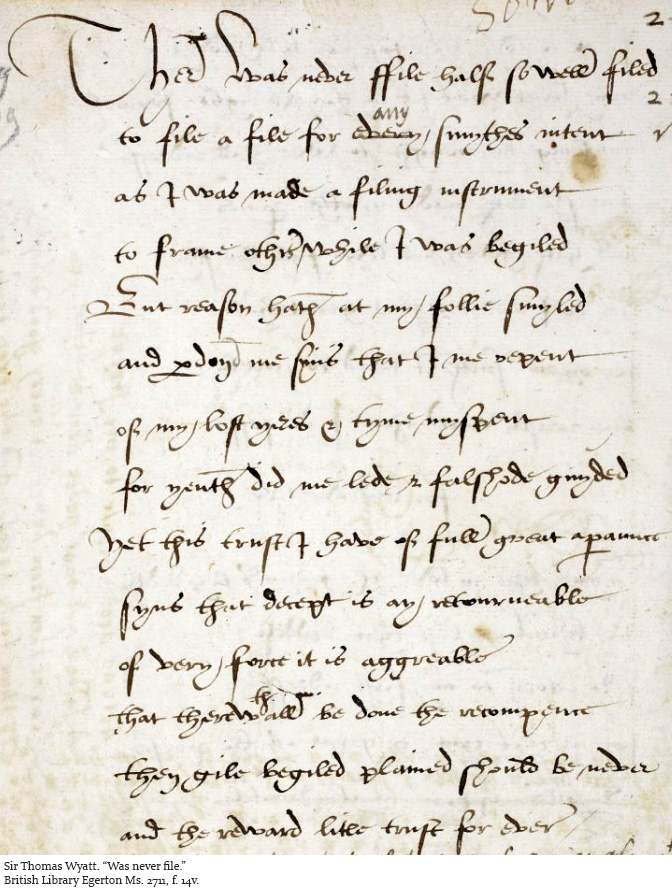 2
Ther Was never ffile half so well filed
2
any
to file a file for every smythes intent
as I was made a filing instrument
to frame othr while I was begiled
But reason hath at my follie smyled
and pdond me syns that I me repent
of my lost yeres & tyme myspent
for yeuth did me lede & falshode guyded
Yet this trust I have of full great aparaunce
syns that decept is ay retourneable
of very force it is aggreable
th
that therewall be done the recompence
then gile begiled plained should be never
and the reward litle trust for ever
Sir Thomas Wyatt. “Was never file.”
British Library Egerton Ms. 2711, f. 14v.